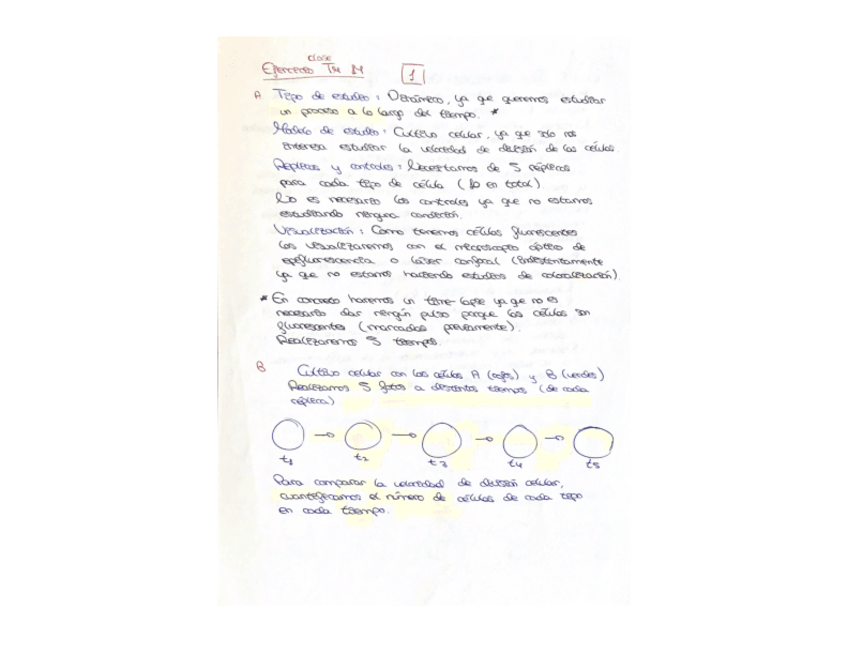 clase
Ejercicio T4 M 1
A Tipo de estudio: Dinámico, ya que queremos estudiar
un proceso a lo largo del tiempo. *
Modelo de estudio: Cultivo celular, ya que solo nos
interesa estudiar la velocidad de división de las células.
Réplicas y controles: Necesitamos de 5 réplicas
para cada tipo de célula (10 en total).
No es necesario los controles ya que no estamos
estudiando ninguna condición.
Visualización: Como tenemos células fluorescentes
las visualizaremos con el microscopio óptico de
epifluorescencia o láser confocal (indistintamente
ya que no estamos haciendo estudios de colocalización).
* En concreto haremos un time-lapse ya que no es
necesario dar ningún pulso porque las células son
fluorescentes (marcadas previamente).
Realizaremos 5 tiempos.
B Cultivo celular con las células A (rojas) y B (verdes)
Realizamos 5 fotos a distintos tiempos (de cada
réplica)
t1 t2 t3 t4 t5
Para comparar la velocidad de división celular,
cuantificamos el número de células de cada tipo
en cada tiempo.